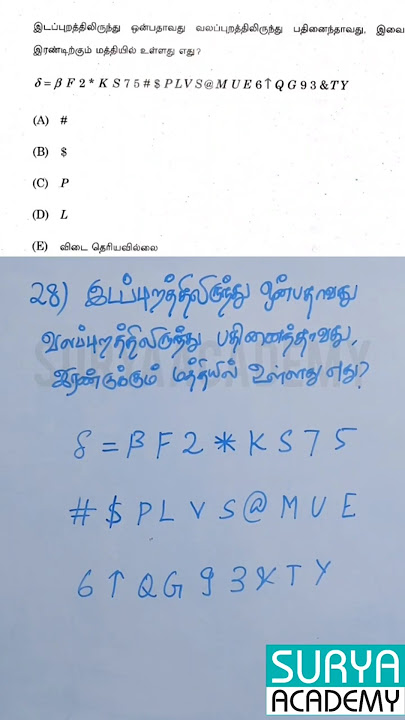 இடப்புறத்திலிருந்து ஒன்பதாவது வலப்புறத்திலிருந்து பதினைந்தாவது, இவை
இரண்டிற்கும் மத்தியில் உள்ளது எது?
δ = β F 2 * K S 7 5 # $ P L V S @ M U E 6 ↑ Q G 9 3 & T Y
(A) #
(B) $
(C) P
(D) L
(E) விடை தெரியவில்லை
28) இடப்புறத்திலிருந்து ஒன்பதாவது
வலப்புறத்திலிருந்து பதினைந்தாவது,
இரண்டுக்கும் மத்தியில் உள்ளது எது?
SURYA ACADEMY
δ = β F 2 * K S 7 5
# $ P L V S @ M U E
6 ↑ Q G 9 3 & T Y
SURYA
ACADEMY